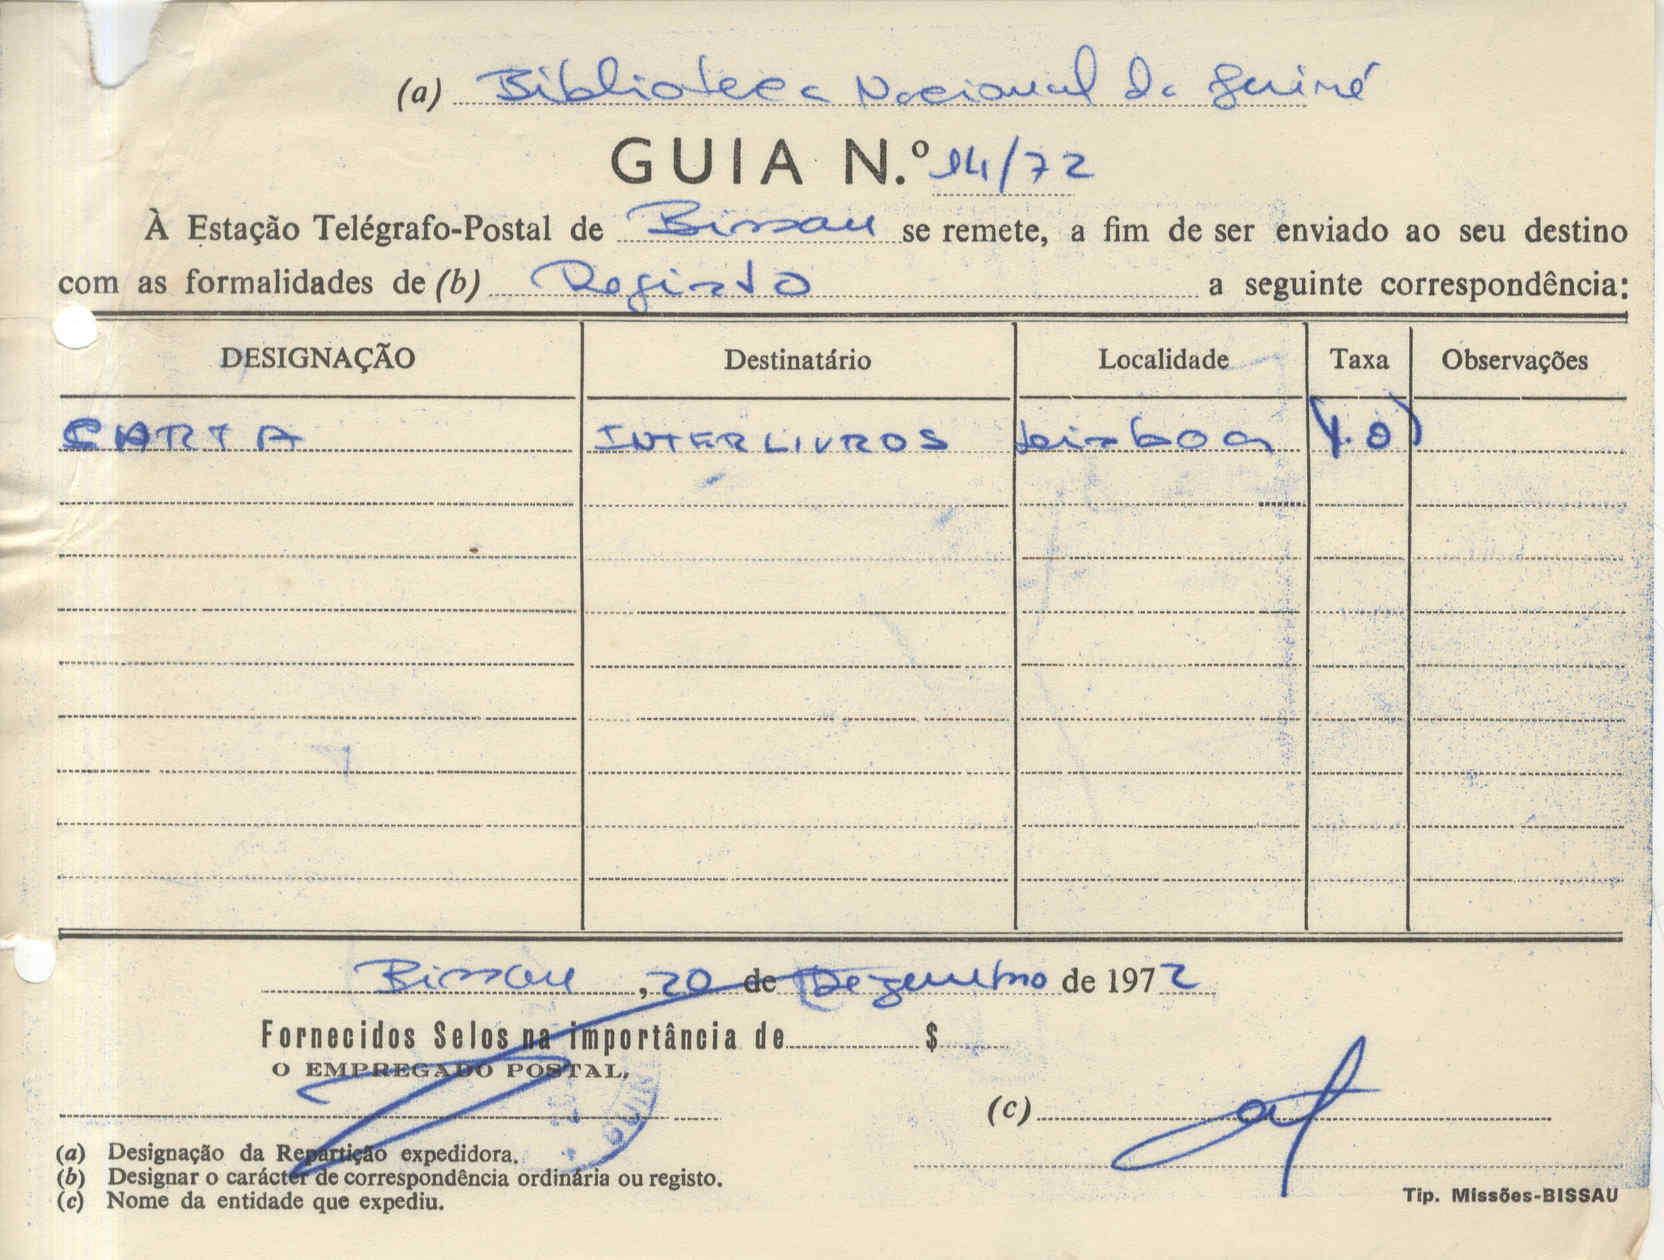 (a) Biblioteca Nacional da Guiné
GUIA N.º 14/72
À Estação Telégrafo-Postal de Bissau se remete, a fim de ser enviado ao seu destino
com as formalidades de (b) Registo a seguinte correspondência:
DESIGNAÇÃO Destinatário Localidade Taxa Observações
CARTA INTERLIVROS Lisboa
Bissau, 20 de Dezembro de 1972
Fornecidos Selos na importância de $
O EMPREGADO POSTAL,
(c)
(a) Designação da Repartição expedidora.
(b) Designar o carácter de correspondência ordinária ou registo.
(c) Nome da entidade que expediu.
Tip. Missões-BISSAU